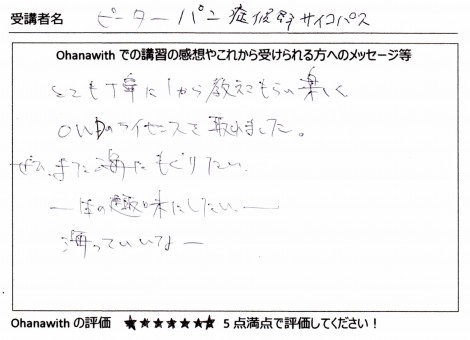 受講者名 ピーターパン症候群サイコパス
Ohanawith での講習の感想やこれから受けられる方へのメッセージ等
とても丁寧に1から教えてもらい楽しく
OWDのライセンスを取れました。
ぜひ、また海にもぐりたい。
一生の趣味にしたい。
海っていいなー
Ohanawith の評価 ★★★★★★★ 5点満点で評価してください！